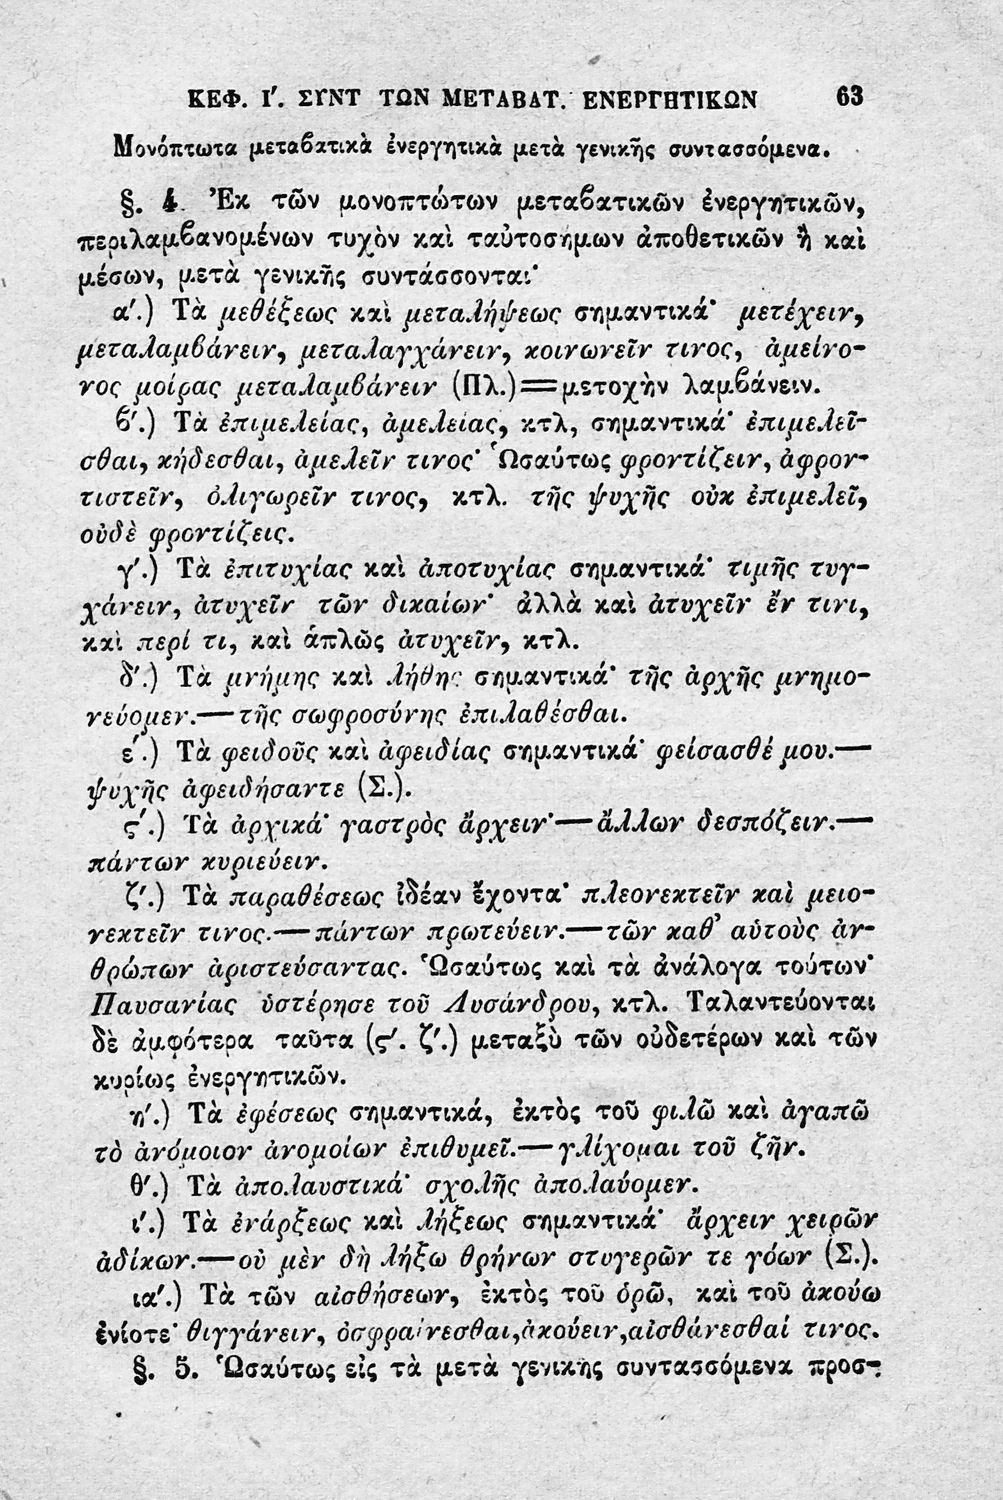 ΚΕΦ. Ι'. ΣΥΝΤ ΤΩΝ ΜΕΤΑΒΑΤ. ΕΝΕΡΓΗΤΙΚΩΝ 63
Μονόπτωτα μεταβατικὰ ἐνεργητικὰ μετὰ γενικῆς συντασσόμενα.
§. 4. Ἐκ τῶν μονοπτώτων μεταβατικῶν ἐνεργητικῶν,
περιλαμβανομένων τυχὸν καὶ ταὐτοσήμων ἀποθετικῶν ἢ καὶ
μέσων, μετὰ γενικῆς συντάσσονται·
α'.) Τὰ μεθέξεως καὶ μεταλήψεως σημαντικά· μετέχειν,
μεταλαμβάνειν, μεταλαγχάνειν, κοινωνεῖν τινος, ἀμείνο-
νος μοίρας μεταλαμβάνειν (Πλ.)=μετοχὴν λαμβάνειν.
β'.) Τὰ ἐπιμελείας, ἀμελείας, κτλ, σημαντικά· ἐπιμελεῖ-
σθαι, κήδεσθαι, ἀμελεῖν τινος· Ὡσαύτως φροντίζειν, ἀφρον-
τιστεῖν, ὀλιγωρεῖν τινος, κτλ. τῆς ψυχῆς οὐκ ἐπιμελεῖ,
οὐδὲ φροντίζεις.
γ'.) Τὰ ἐπιτυχίας καὶ ἀποτυχίας σημαντικά· τιμῆς τυγ-
χάνειν, ἀτυχεῖν τῶν δικαίων· ἀλλὰ καὶ ἀτυχεῖν ἔν τινι,
καὶ περί τι, καὶ ἁπλῶς ἀτυχεῖν, κτλ.
δ'.) Τὰ μνήμης καὶ λήθης σημαντικά· τῆς ἀρχῆς μνημο-
νεύομεν.—τῆς σωφροσύνης ἐπιλαθέσθαι.
ε'.) Τὰ φειδοῦς καὶ ἀφειδίας σημαντικά· φείσασθέ μου.—
ψυχῆς ἀφειδήσαντε (Σ.).
ϛ'.) Τὰ ἀρχικά· γαστρὸς ἄρχειν·—ἄλλων δεσπόζειν.—
πάντων κυριεύειν.
ζ'.) Τὰ παραθέσεως ἰδέαν ἔχοντα· πλεονεκτεῖν καὶ μειο-
νεκτεῖν τινος.—πάντων πρωτεύειν.—τῶν καθ' αὑτοὺς ἀν-
θρώπων ἀριστεύσαντας. Ὡσαύτως καὶ τὰ ἀνάλογα τούτων·
Παυσανίας ὑστέρησε τοῦ Λυσάνδρου, κτλ. Ταλαντεύονται
δὲ ἀμφότερα ταῦτα (ϛ'. ζ'.) μεταξὺ τῶν οὐδετέρων καὶ τῶν
κυρίως ἐνεργητικῶν.
η'.) Τὰ ἐφέσεως σημαντικά, ἐκτὸς τοῦ φιλῶ καὶ ἀγαπῶ
τὸ ἀνόμοιον ἀνομοίων ἐπιθυμεῖ.—γλίχομαι τοῦ ζῆν.
θ'.) Τὰ ἀπολαυστικά· σχολῆς ἀπολαύομεν.
ι'.) Τὰ ἐνάρξεως καὶ λήξεως σημαντικά· ἄρχειν χειρῶν
ἀδίκων.—οὐ μὲν δὴ λήξω θρήνων στυγερῶν τε γόων (Σ.).
ια'.) Τὰ τῶν αἰσθήσεων, ἐκτὸς τοῦ ὁρῶ, καὶ τοῦ ἀκούω
ἐνίοτε· θιγγάνειν, ὀσφραίνεσθαι, ἀκούειν, αἰσθάνεσθαί τινος.
§. 5. Ὡσαύτως εἰς τὰ μετὰ γενικῆς συντασσόμενα προσ-